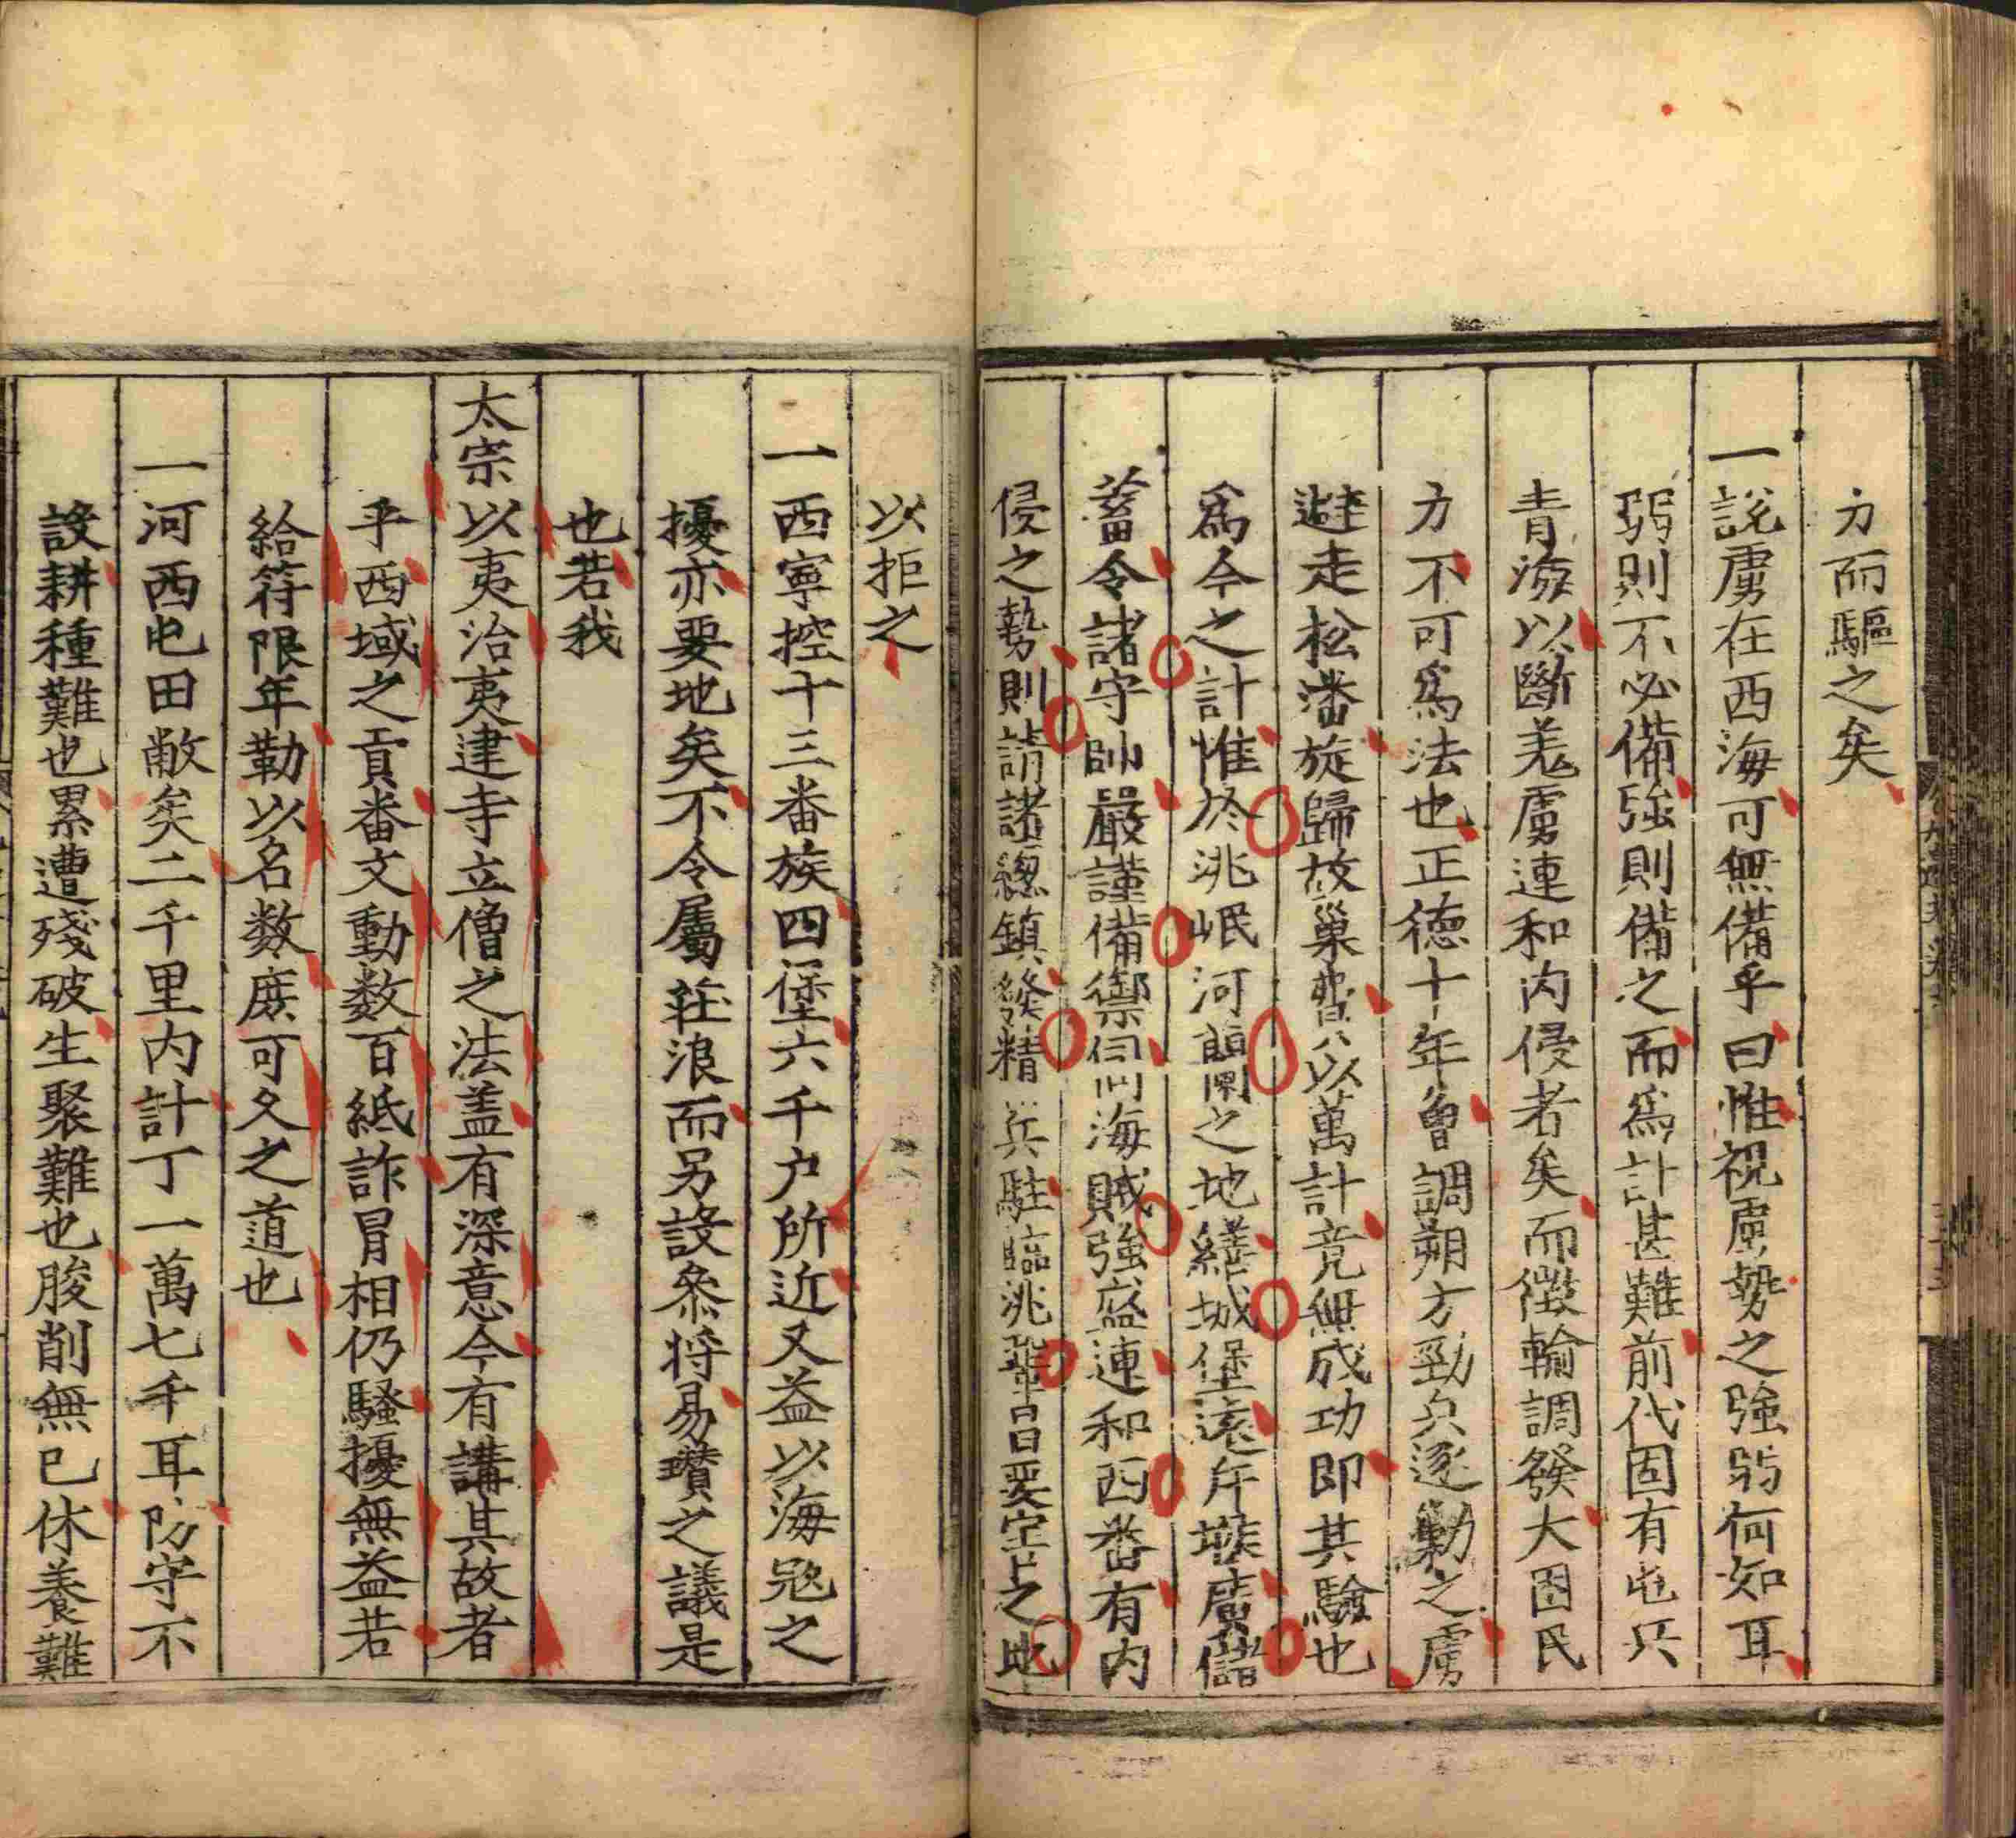 力而驅之矣
一說虜在西海可無備乎曰惟視虜勢之強弱何如耳
弱則不必備強則備之而爲計甚難前代固有屯兵
青海以斷羌虜連和内侵者矣而徵輸調發大困民
力不可爲法也正德十年曾調朔方勁兵逐勦之虜
避走松潘旋歸故巢費以萬計竟無成功即其驗也
爲今之計惟於洮岷河蘭之地繕城堡遠斥堠廣儲
蓄令諸守帥嚴謹備禦伺海賊強盛連和西番有内
侵之勢則請諸緫鎮發精兵駐臨洮鞏昌要害之地
以拒之
一西寧控十三番族四堡六千户所近又益以海冦之
擾亦要地矣不令屬莊浪而另設叅将易瓚之議是
也若我
太宗以夷治夷建寺立僧之法盖有深意今有講其故者
乎西域之貢番文動数百紙詐冐相仍騷擾無益若
給符限年勒以名数庶可久之道也
一河西屯田敝矣二千里内計丁一萬七千耳防守不
設耕種難也累遭殘破生聚難也朘削無已休養難